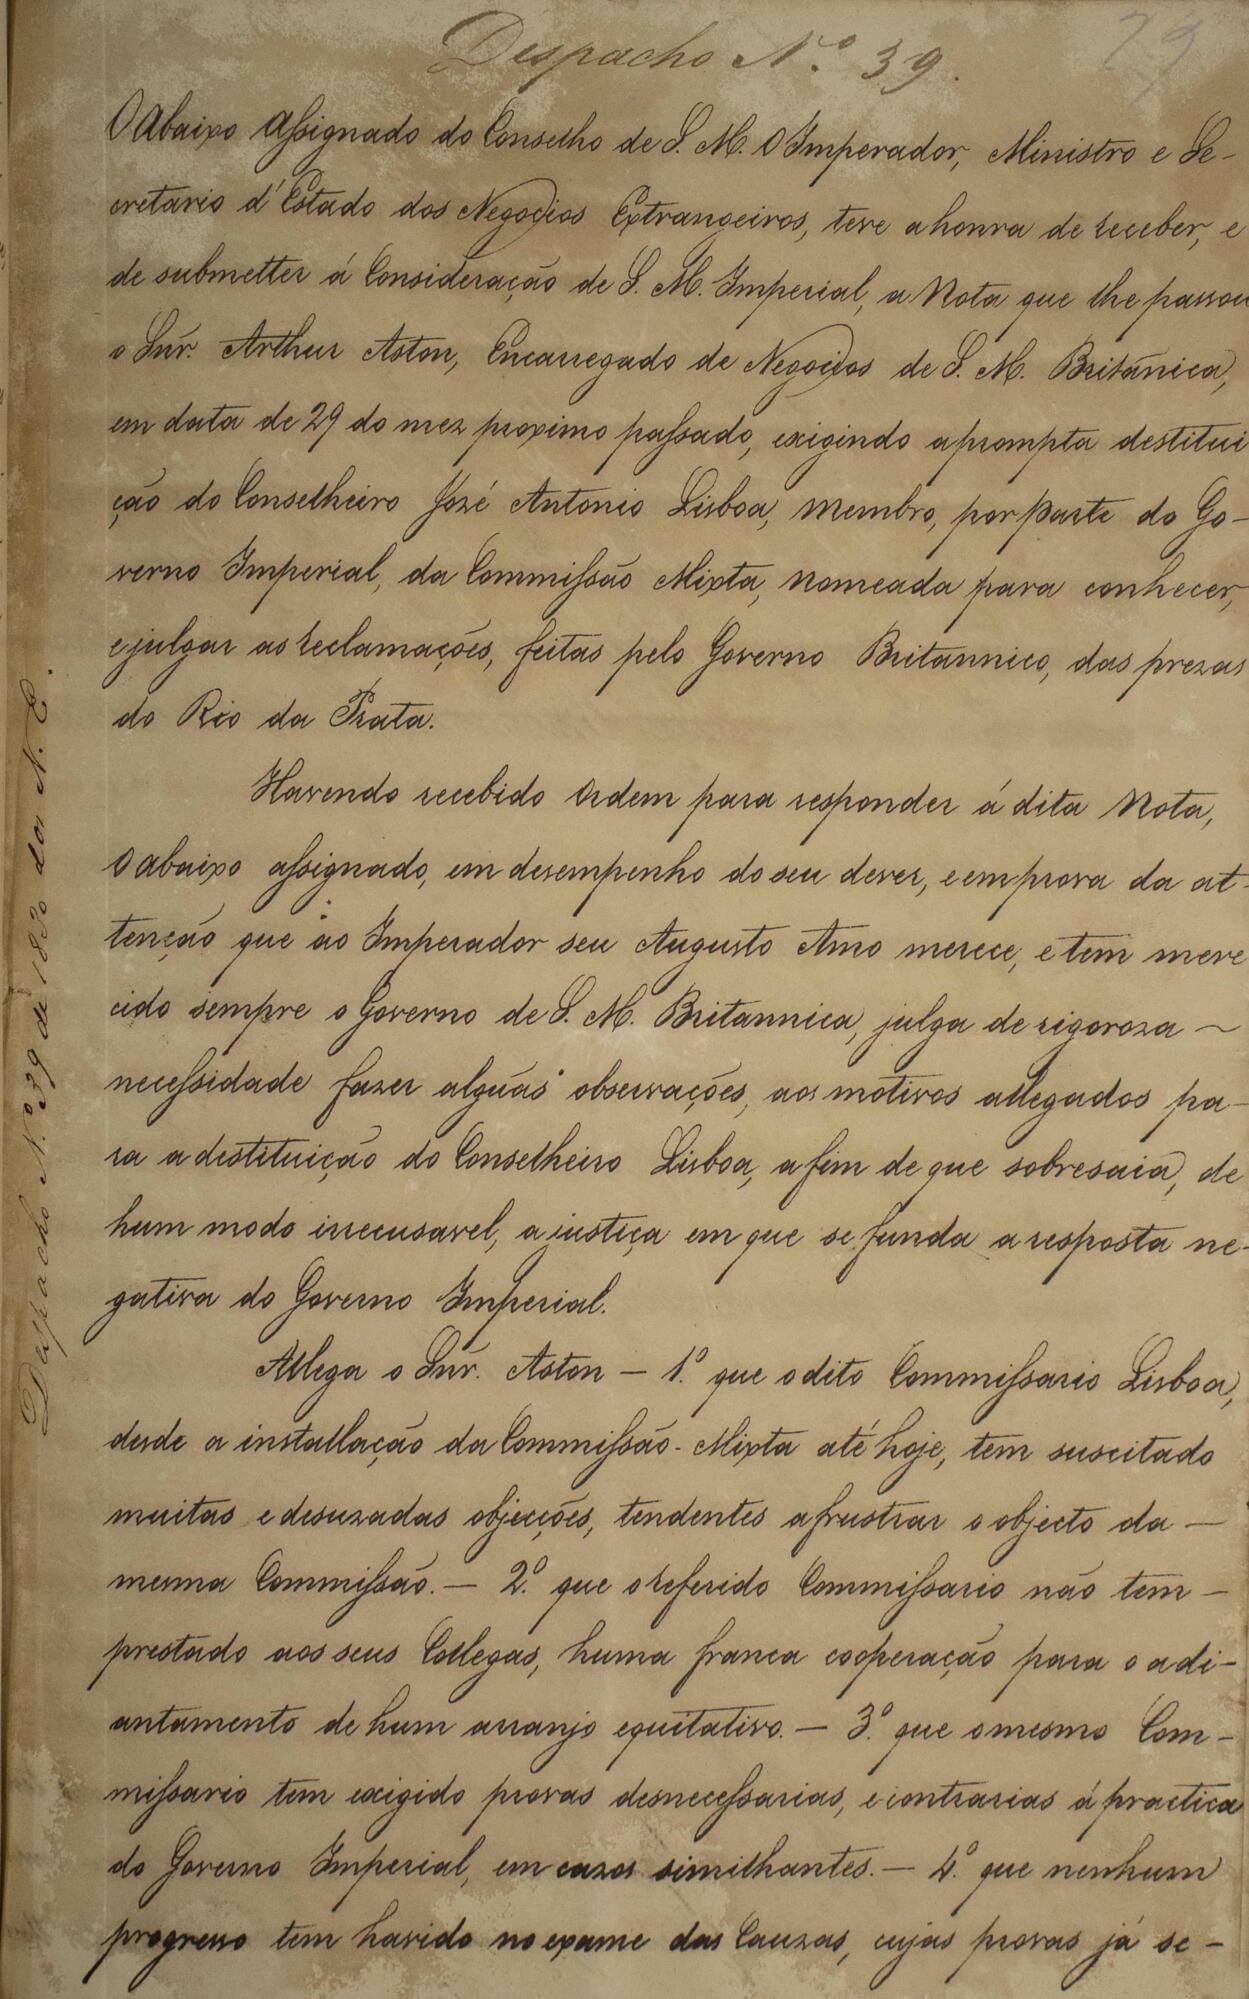 Despacho N.º 39.
79
O Abaixo Assignado do Conselho de S. M. O Imperador, Ministro e Se-
cretario d'Estado dos Negocios Extrangeiros, teve a honra de receber, e
de submetter á Consideração de S. M. Imperial, a Nota que lhe passou
o Snr. Arthur Aston, Encarregado de Negocios de S. M. Britânica,
em data de 29 do mez proximo passado, exigindo a prompta destitui
ção do Conselheiro José Antonio Lisboa, membro, por parte do Go-
verno Imperial, da Commissão Mixta, nomeada para conhecer,
e julgar as reclamações, feitas pelo Governo Britannico, das prezas
do Rio da Prata.
Havendo recebido Ordem para responder á dita Nota,
O abaixo assignado, em desempenho do seu dever, e em prova da at-
tenção que ao Imperador seu Augusto Amo merece, e tem mere
cido sempre o Governo de S. M. Britannica, julga de rigoroza -
necessidade fazer alguãs observações, aos motivos allegados pa-
ra a destituição do Conselheiro Lisboa, a fim de que sobresaia, de
hum modo irrecusavel, a justiça em que se funda a resposta ne-
gativa do Governo Imperial.
Allega o Snr. Aston - 1º. que o dito Commissario Lisboa,
desde a installação da Commissão-Mixta até hoje, tem suscitado
muitas e desuzadas objecções, tendentes a frustrar o objecto da -
mesma Commissão. - 2º. que o referido Commissario não tem -
prestado aos seus Collegas, huma franca cooperação para o adi-
antamento de hum arranjo equitativo. - 3º. que o mesmo Com-
missario tem exigido provas desnecessarias, e contrarias á practica
do Governo Imperial, em cazos similhantes. - 4º. que nenhum
progresso tem havido no exame das Cauzas, cujas provas já se-
Despacho N.º 39 de 1830 dos N. E.